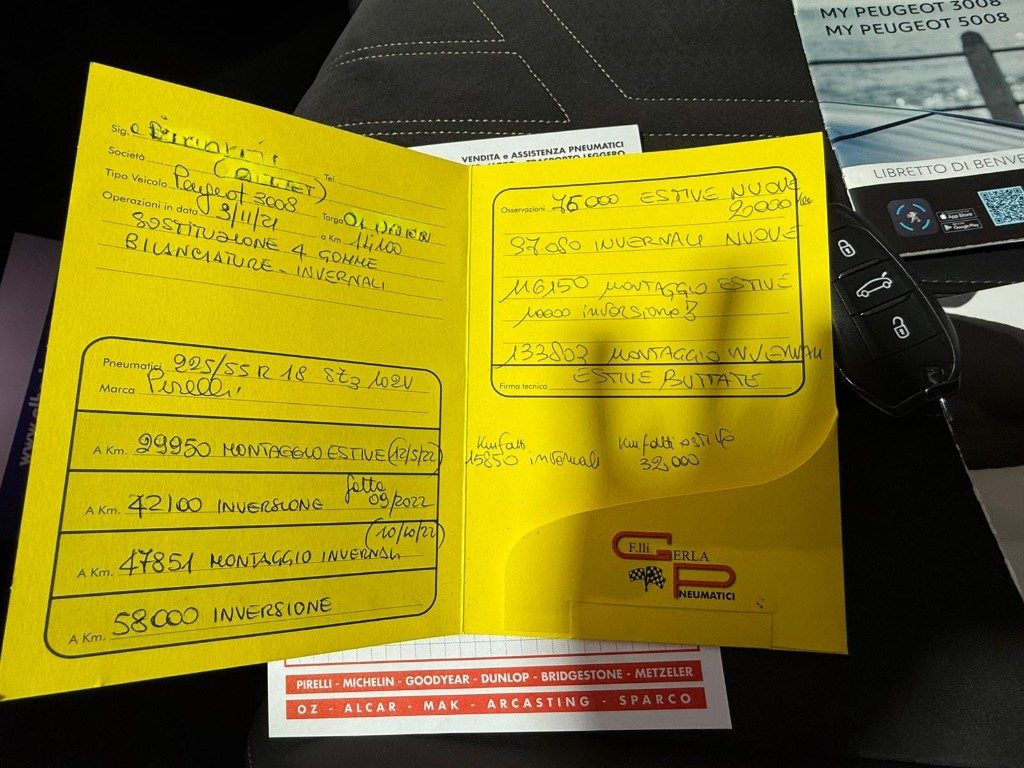 MY PEUGEOT 3008
MY PEUGEOT 5008
LIBRETTO DI BENVE
App Store
Google Play
VENDITA e ASSISTENZA PNEUMATICI
TRASPORTO LEGGERO
Sig.
Società
Tel
Tipo Veicolo Peugeot 3008 Targa
Operazioni in data 3/11/21 a Km. 14100
SOSTITUZIONE 4 GOMME
BILANCIATURE - INVERNALI
Pneumatic 225/55 R 18 102V
Marca Pirelli
A Km. 29950 MONTAGGIO ESTIVE (12/5/22)
A Km. 42100 INVERSIONE fatta 09/2022
(10/10/22)
A Km. 47851 MONTAGGIO INVERNALI
A Km. 58000 INVERSIONE
Osservazioni 75000 ESTIVE NUOVE
20000 km
97080 INVERNALI NUOVE
116150 MONTAGGIO ESTIVE
10000 inversione!
133803 MONTAGGIO INVERNALI
Firma tecnico ESTIVE BUTTATE
Km fatti
15850 invernali
Km fatti estive
32.000
F.lli GERLA
PNEUMATICI
PIRELLI - MICHELIN - GOODYEAR - DUNLOP - BRIDGESTONE - METZELER
OZ - ALCAR - MAK - ARCASTING - SPARCO